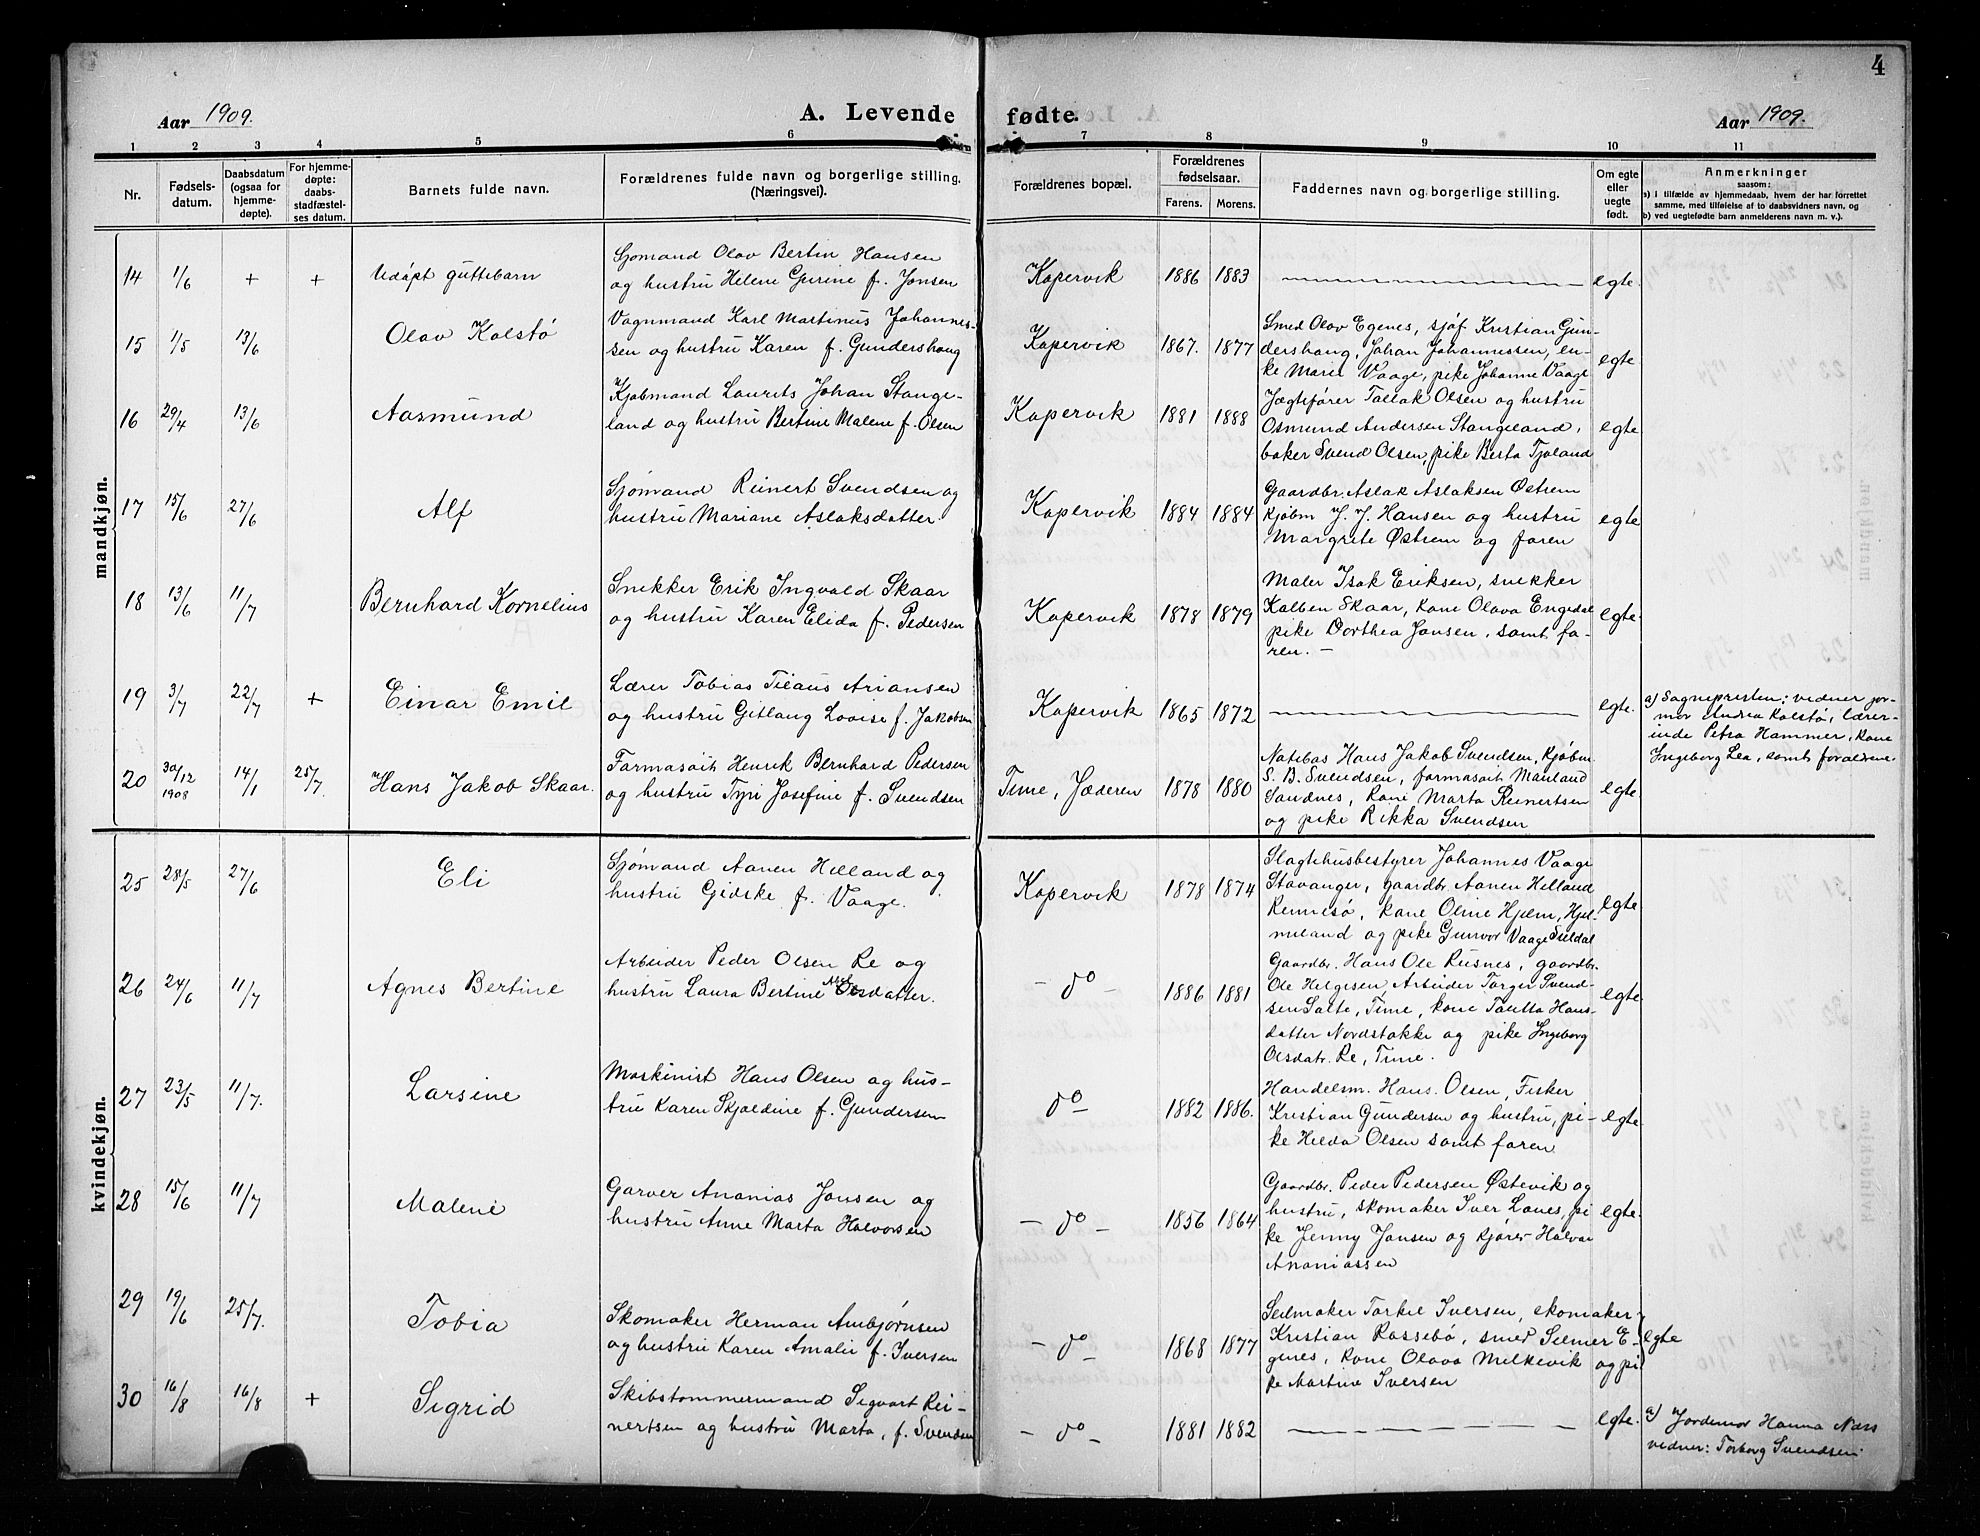 4
Aar 1909.
A. Levende fødte.
Aar 1909.
1 2 3 4 5 6 7 8 9 10 11
Nr.
Fødsels-
datum.
Daabsdatum
(ogsaa for
hjemme-
døpte).
For hjemme-
døpte: daabs-
stadfæstel-
ses datum.
Barnets fulde navn.
Forældrenes fulde navn og borgerlige stilling.
(Næringsvei).
Forældrenes bopæl.
Forældrenes
fødselsaar.
Farens. Morens.
Faddernes navn og borgerlige stilling.
Om egte
eller
uegte
født.
Anmerkninger
saasom:
a) i tilfælde av hjemmedaab, hvem der har forrettet
samme, med tilføielse af to daabsvidners navn, og
b) ved uegtefødte barn anmelderens navn m. v.).
mandkjøn.
14 1/6 + + Udøpt guttebarn
Sjømand Olav Bertin Hansen
og hustru Helene Gurine f. Jonsen
Kopervik 1886 1883 egte.
15 1/5 13/6 Olav Kolstø
Vognmand Karl Martinus Johannes-
sen og hustru Karen f. Gundershaug
Kopervik 1867. 1877
Smed Olav Egenes, sjøf. Kristian Gun-
dershaug, Johan Johannessen, en-
ke Marie Vaage, pike Johanne Vaage
egte
16 29/4 13/6 Aasmund
Kjøbmand Laurits Johan Stange-
land og hustru Bertine Malene f. Olsen
Kopervik 1881 1888
Jægtefører Tallak Olsen og hustru
Osmund Andersen Stangeland,
baker Svend Olsen, pike Berta Tjøland
egte
17 15/6 27/6 Alf
Sjømand Reinert Svendsen og
hustru Mariane Aslaksdatter.
Kopervik 1884 1884
Gaardbr. Aslak Aslaksen Østrem
kjøbm J. J. Hansen og hustru
Margrete Østrem og faren
egte
18 13/6 11/7 Bernhard Kornelius
Snekker Erik Ingvald Skaar
og hustru Karen Elida f. Pedersen
Kopervik 1878 1879
Maler Isak Eriksen, snekker
Kalben Skaar, kone Olava Engedal
pike Dorthea Jansen, samt fa-
ren. —
egte
19 3/7 22/7 + Einar Emil
Lærer Tobias Tilaus Ariansen
og hustru Gitlaug Lovise f. Jakobsen
Kopervik 1865 1872 egte.
a) Sognepresten: vidner jor-
mor Andrea Kolstø, lærer-
inde Petra Hammer, kone
Ingeborg Lea, samt forældrene.
20 30/12 1908 14/1 25/7 Hans Jakob Skaar.
Farmasøit Henrik Bernhard Pedersen
og hustru Tyri Josefine f. Svendsen
Time, Jæderen 1878 1880
Hans Jakob Svendsen, kjøbm.
S. B. Svendsen, farmasøit Manland
Sandnes, kone Marta Reinertsen
og pike Rikka Svendsen
egte
kvindekjøn.
25 28/5 27/6 Eli
Sjømand Aanen Helland og
hustru Gidske f. Vaage.
Kopervik 1878 1874
Slagtehusbestyrer Johannes Vaage
Stavanger, gaardbr. Aanen Helland
Rennesø, kone Oline Hjelm, Hjel-
meland og pike Gunvor Vaage Suldal
egte
26 24/6 11/7 Agnes Bertine
Arbeider Peder Olsen Re og
hustru Laura Bertine datter.
— do — 1886 1881
Gaardbr. Hans Ole Risnes, gaardbr.
Ole Helgesen, Arbeider Torger Svend-
sen Salte, Time, kone Tautta Hans-
datter Nordstokke og pike Ingeborg
Olsdatr. Re, Time.
egte
27 23/5 11/7. Larsine
Maskinist Hans Olsen og hus-
tru Karen Skjoldine f. Gundersen
do — 1882 1886.
Handelsm. Hans. Olsen, Fisker
Kristian Gundersen og hustru, pi-
ke Hilda Olsen samt faren
egte
28 15/6 11/7 Malene
Garver Ananias Jonsen og
hustru Anne Marta Halvorsen
— do — 1856 1864
Gaardbr. Peder Pedersen Østevik og
hustru, skomaker Iver Lones, pi
ke Jenny Jansen og kjører Halvor
Ananiassen
egte
29 19/6 25/7. Tobia
Skomaker Herman Ambjørnsen
og hustru Karen Amalie f. Iversen
— do — 1868 1877
Seilmaker Torkel Iversen, skomaker
Kristian Rossebø, smed Selmer E-
genes, kone Olava Melkevik og pi
ke Martine Iversen
egte
30 16/8 16/8 + Sigrid
Skibstømmermand Sigvart Rei-
nertsen og hustru Marta, f. Svendsen
— do — 1881 1882 egte.
a) Jordemor Hanna Næss
vidner: Torborg Svendsen